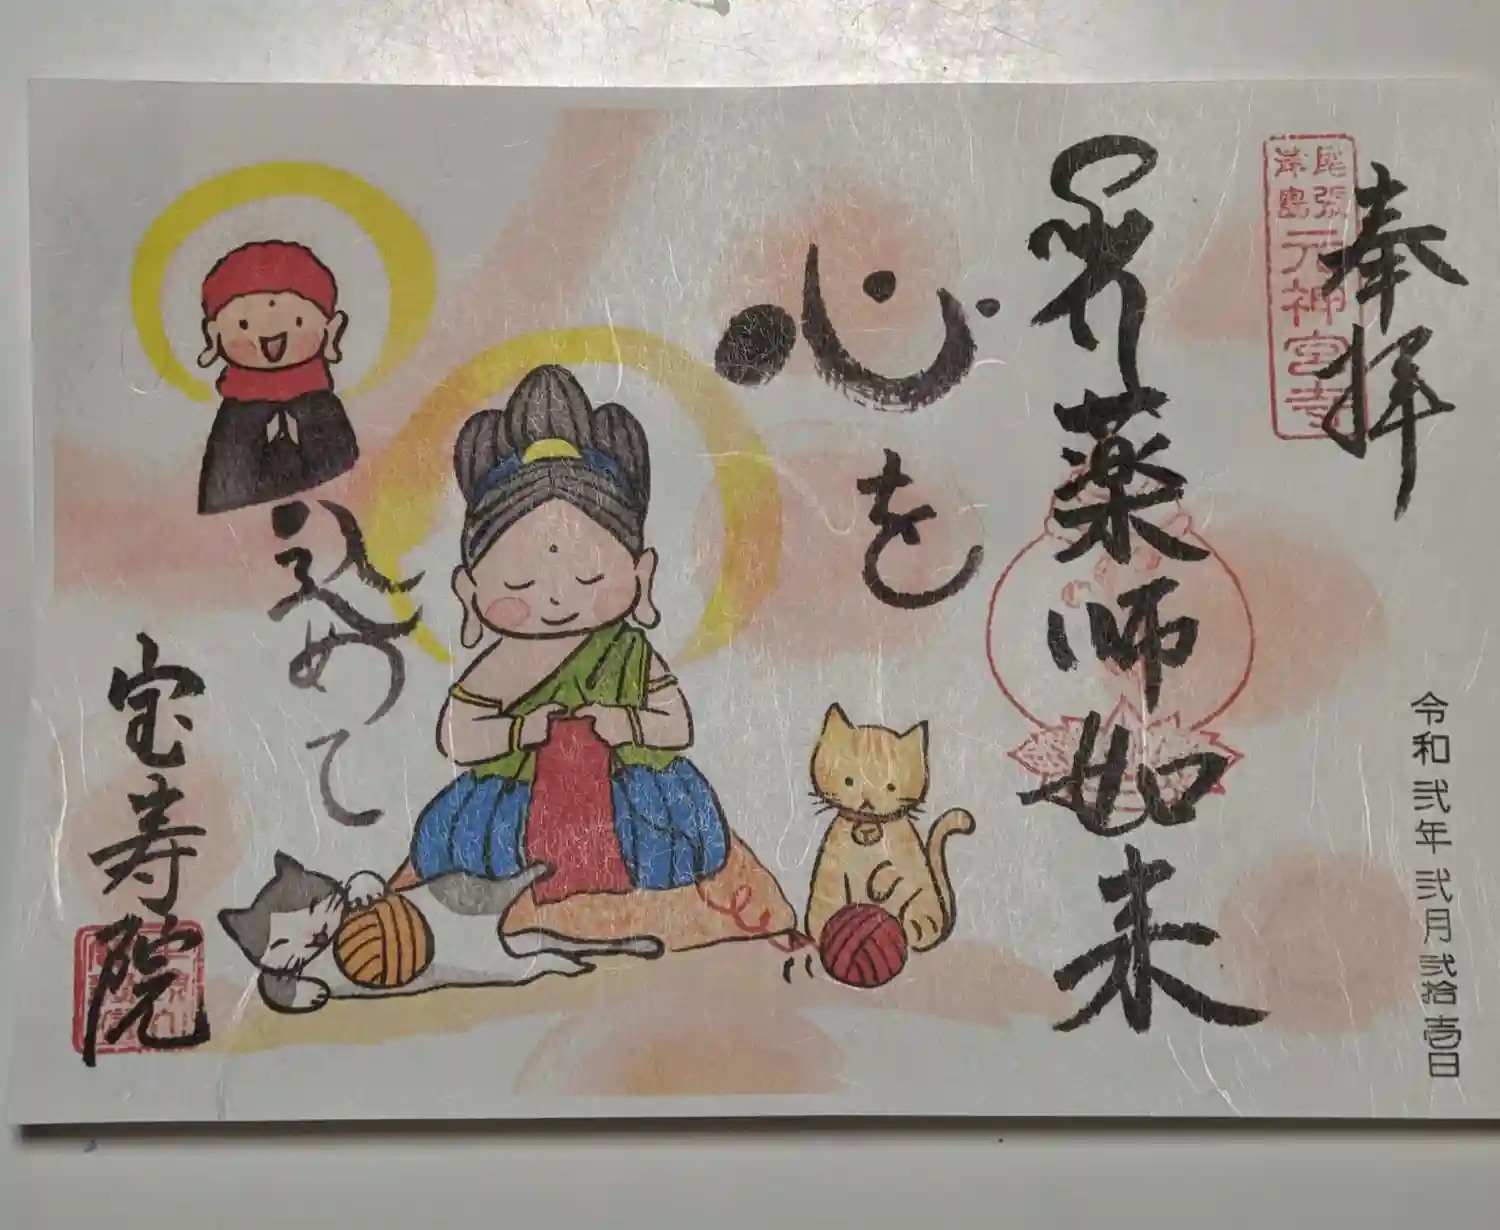 令和弐年弐月弐拾壱日
奉拝
尾張
津島
元神宮寺
薬師如来
心を
込めて
宝寿院